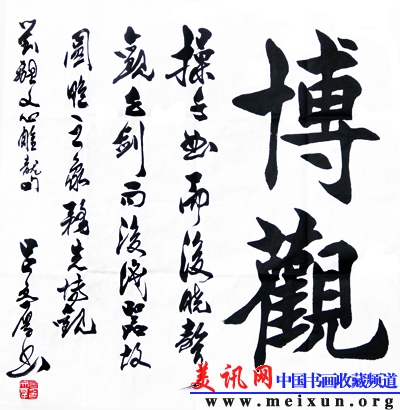 博觀
操千曲而後曉聲
觀千劍而後识器故
圓照之象務先博觀
劉勰文心雕龍句
吕 书
美讯网 中国书画收藏频道
www.meixun.org